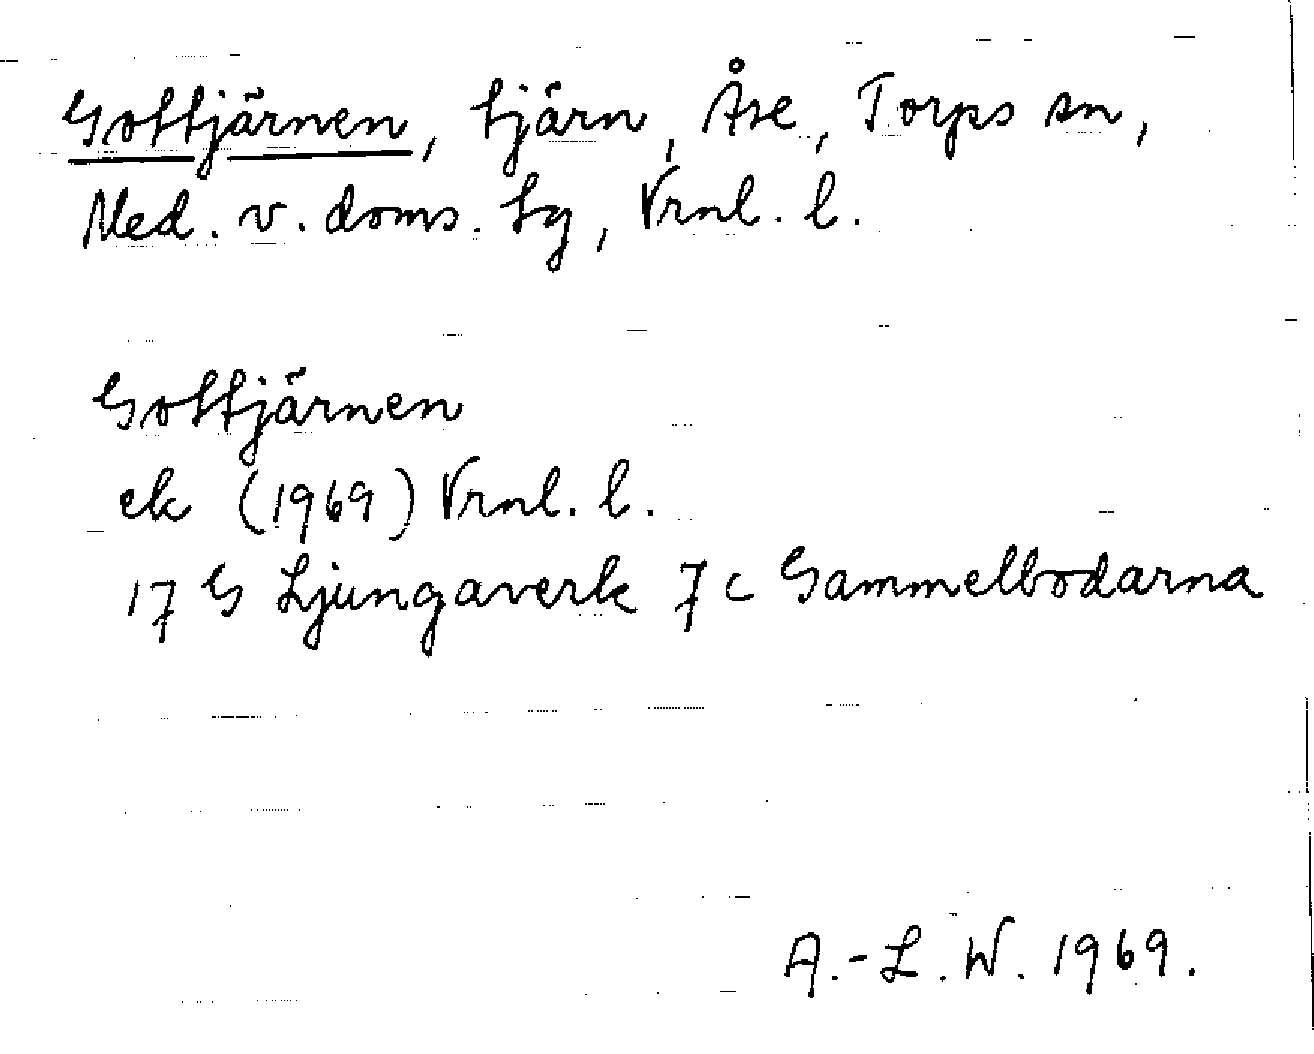 Gottjärnen, tjärn, Åse, Torps sn,
Med. v. doms. tg, Vrnl. l.
Gottjärnen
ek (1969) Vrnl. l.
17 G Ljungaverk 7 c Gammelbodarna
A.-L. W. 1969.